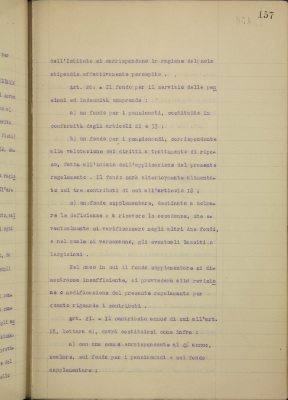 157
dell'Istituto si corrisponde in ragione del solo
stipendio effettivamente percepito .
Art. 20. - Il fondo per il servizio delle pen
sioni ed indennità comprende :
a) un fondo per i pensionati, costituito in
conformità degli articoli 21 e 33 ;
b) un fondo per i pensionandi, corrispondente
alla valutazione dei diritti a trattamento di ripo-
so, fatta all'inizio dell'applicazione del presente
regolamento . Il fondo sarà ulteriormente alimenta-
to coi tre contributi di cui all'articolo 18 ;
c) un fondo supplementare, destinato a colma-
re le deficienze e a ricevere le eccedenze, che e-
ventualmente si verificassero negli altri due fondi,
e nel quale si verseranno, gli eventuali lasciti e
elargizioni .
Nel caso in cui il fondo supplementare si di-
mostrasse insufficiente, si provvederà alla revisio-
ne e modificazione del presente regolamento per
quanto riguarda i contributi .
Art. 21. - Il contributo annuo di cui all'art.
18, lettera a), dovrà costituirsi come infra :
a) con una somma
scolara, sul fondo per i pensionati e sul fondo
supplementare ;